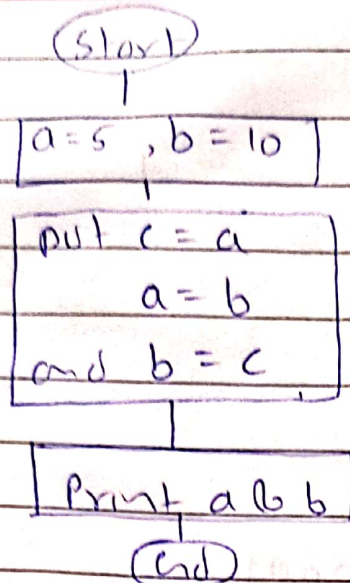 Start
a = 5 , b = 10
put c = a
a = b
and b = c
Print a & b
End